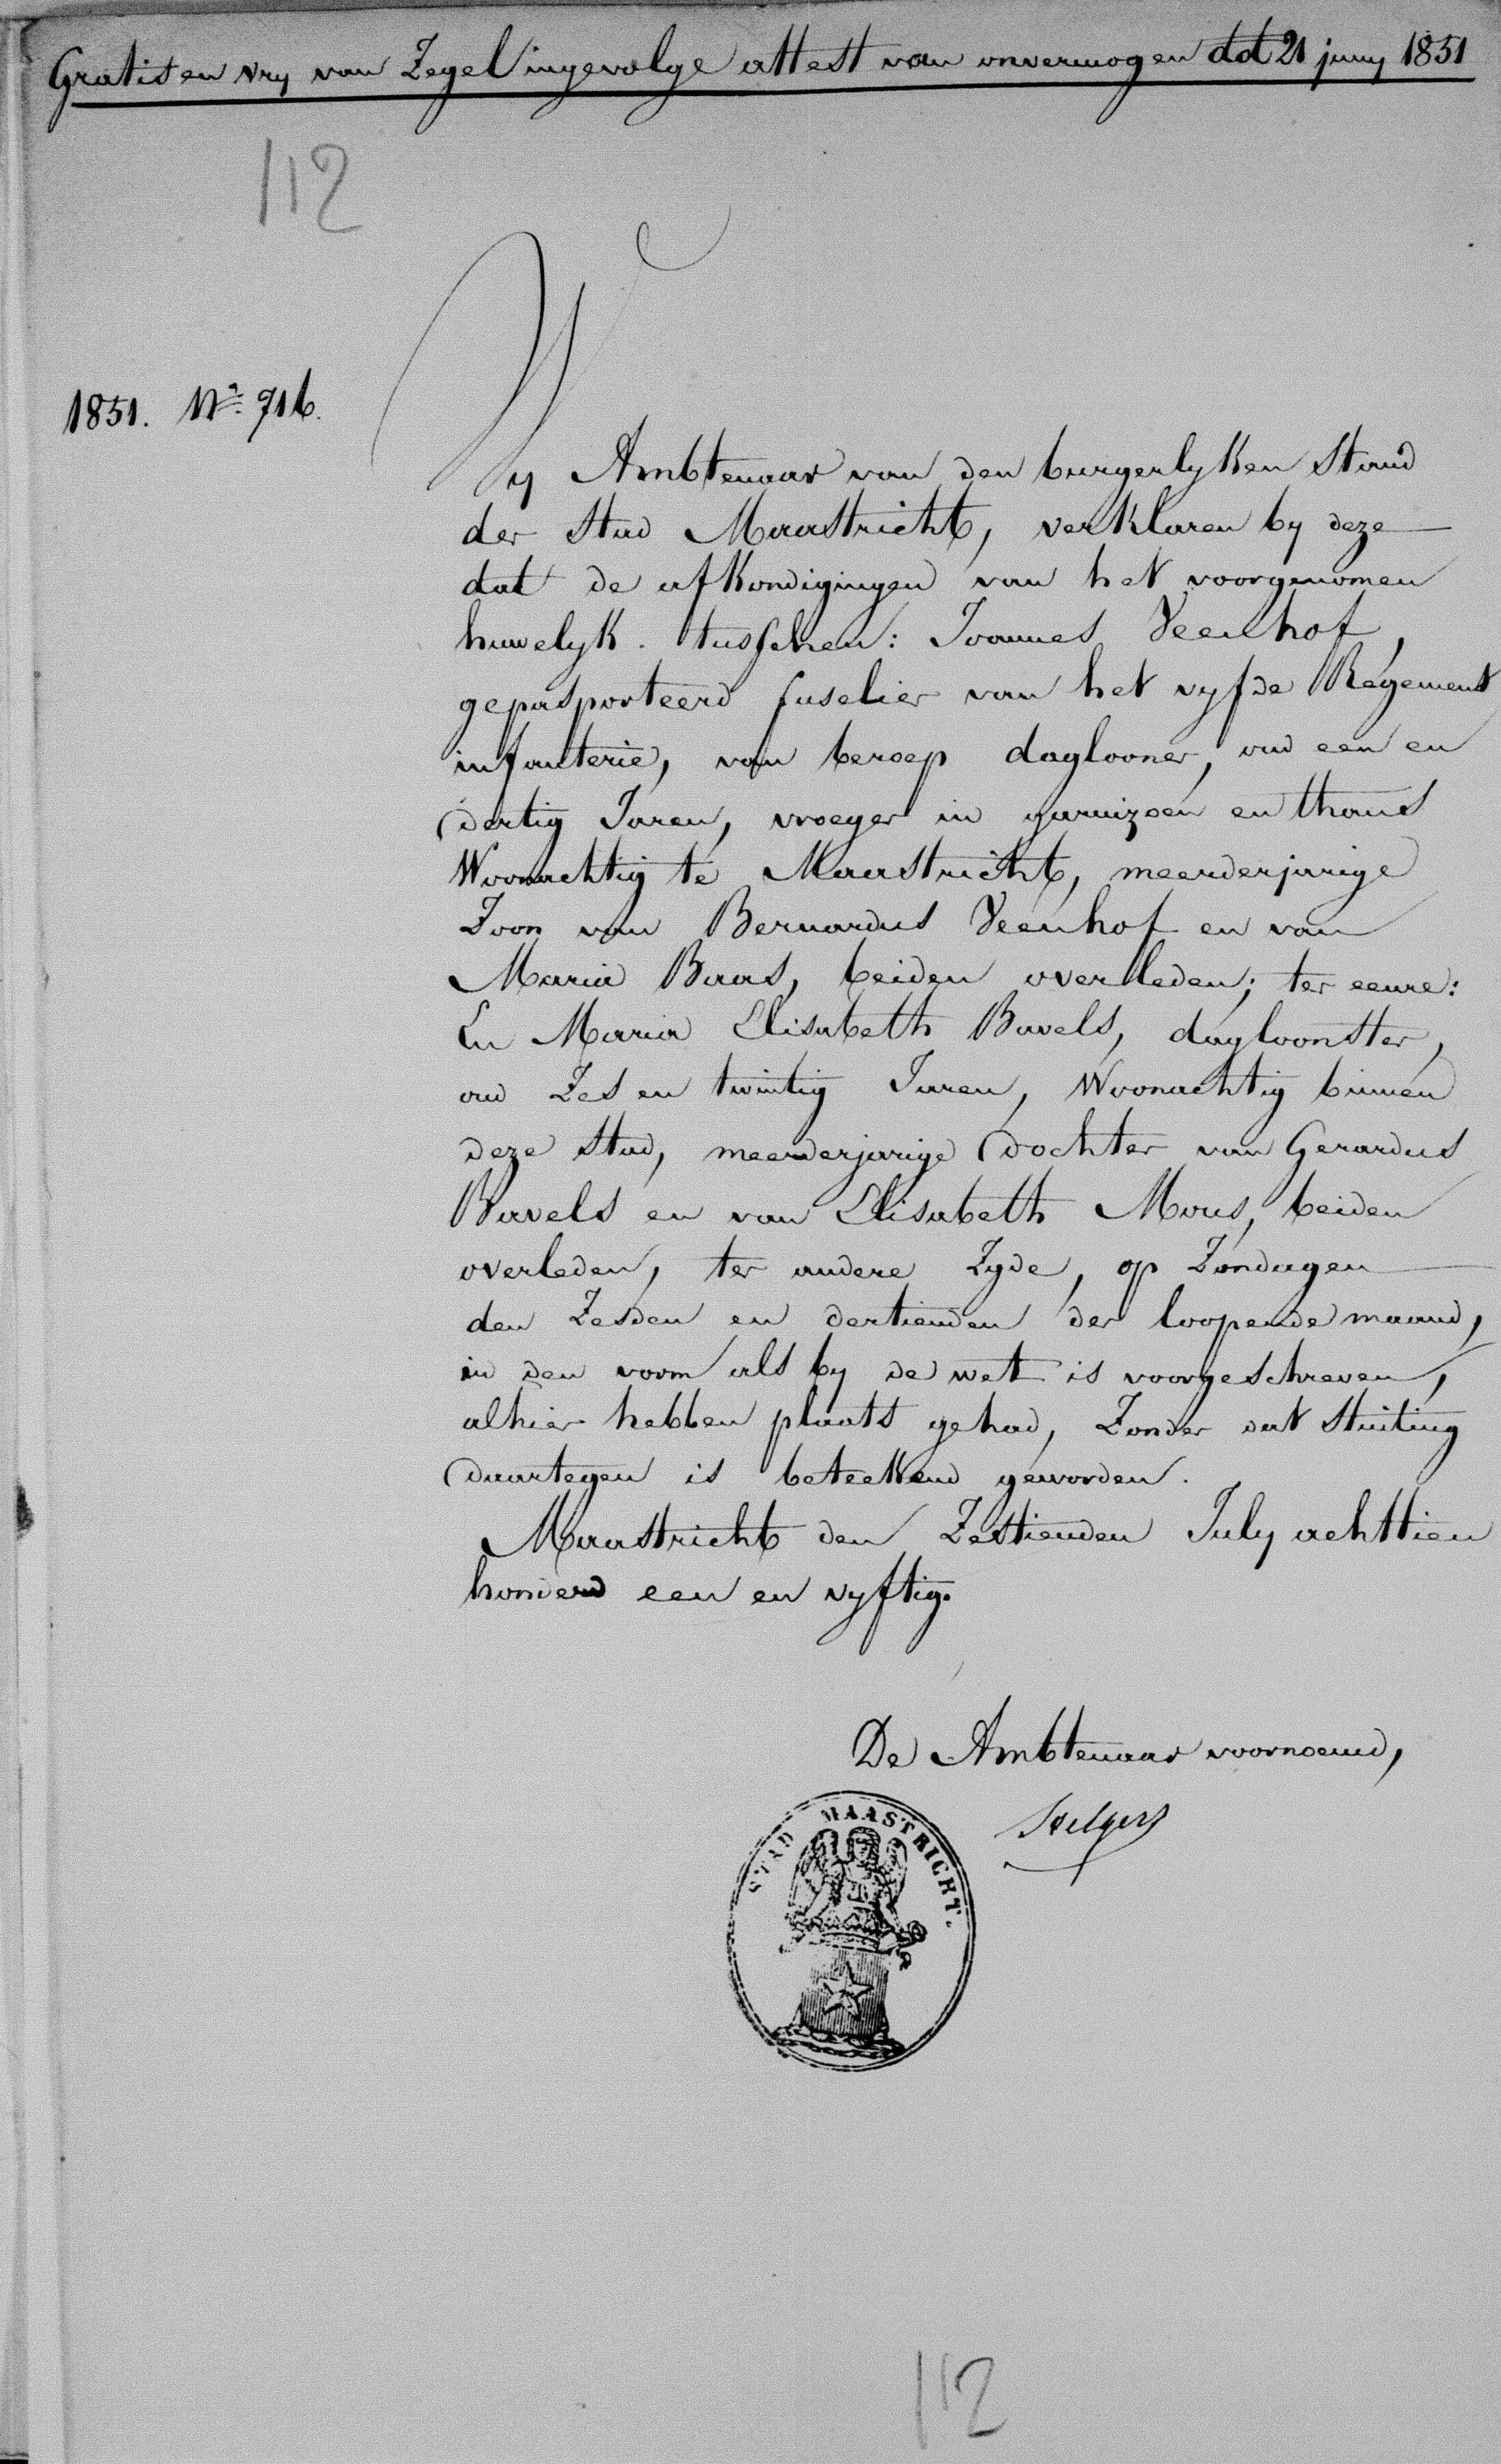 Gratis en vry van Zegel ingevolge attest van onvermogen dd 21 juny 1851
112
1851. No. 716.
Wy Ambtenaar van den burgerlyken Stand
der Stad Maastricht, verklaren by deze
dat de afkondigingen van het voorgenomen
huwelyk. tusschen: Joannes Veenhof,
gepasporteerd fuselier van het vyfde Regement
infanterie, van beroep daglooner, oud een en
dertig Jaren, vroeger in garnizoen en thans
Woonachtig te Maastricht, meerderjarige
Zoon van Bernardus Veenhof en van
Maria Baas, beiden overleden; ter eenre:
En Maria Elisabeth Bavels, dagloonster,
oud Zes en twintig Jaren, Woonachtig binnen
deze stad, meerderjarige dochter van Gerardus
Bavels en van Elisabeth Mous, beiden
overleden, ter andere Zyde, op Zondagen
den Zesden en dertienden der loopende maand,
in den vorm als by de wet is voorgeschreven,
alhier hebben plaats gehad, Zonder dat Stuiting
daartegen is beteekend geworden.
Maastricht den Zestienden July achttien
honderd een en vyftig.
De Ambtenaar voornoemd,
STAD MAASTRICHT.
112